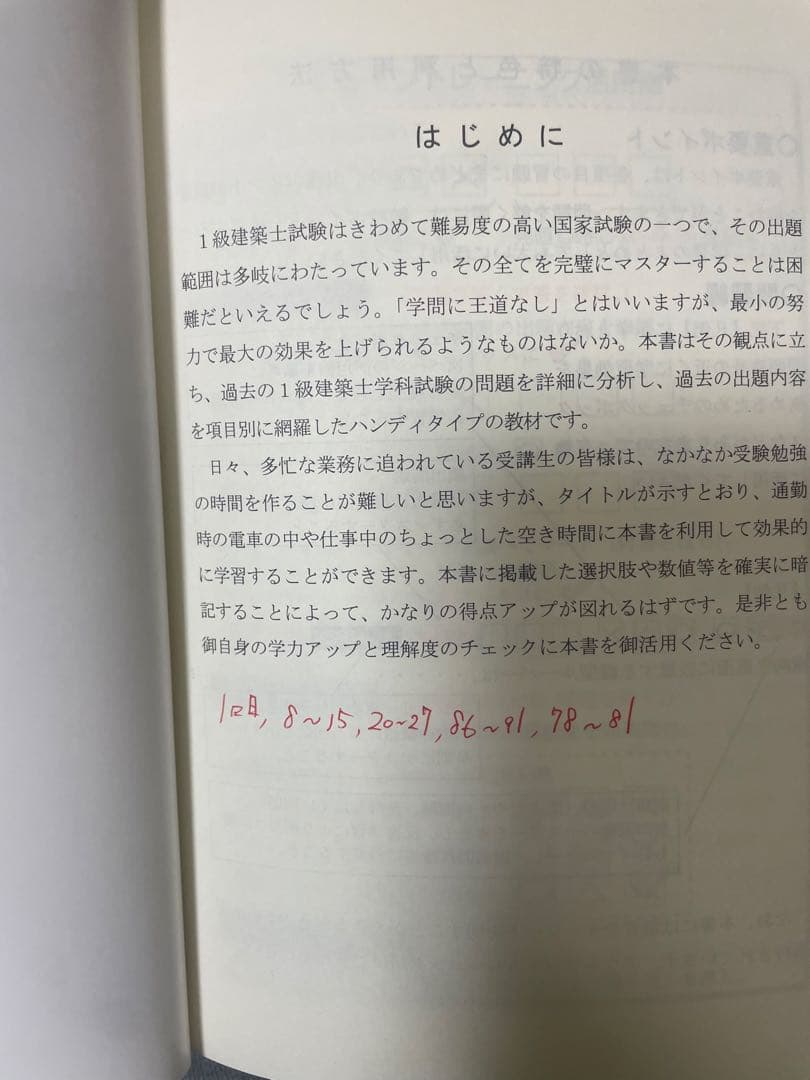 はじめに
1級建築士試験はきわめて難易度の高い国家試験の一つで、その出題
範囲は多岐にわたっています。その全てを完璧にマスターすることは困
難だといえるでしょう。「学問に王道なし」とはいいますが、最小の努
力で最大の効果を上げられるようなものはないか。本書はその観点に立
ち、過去の1級建築士学科試験の問題を詳細に分析し、過去の出題内容
を項目別に網羅したハンディタイプの教材です。
日々、多忙な業務に追われている受講生の皆様は、なかなか受験勉強
の時間を作ることが難しいと思いますが、タイトルが示すとおり、通勤
時の電車の中や仕事中のちょっとした空き時間に本書を利用して効果的
に学習することができます。本書に掲載した選択肢や数値等を確実に暗
記することによって、かなりの得点アップが図れるはずです。是非とも
御自身の学力アップと理解度のチェックに本書を御活用ください。
1回目, 8～15, 20～27, 86～91, 78～81